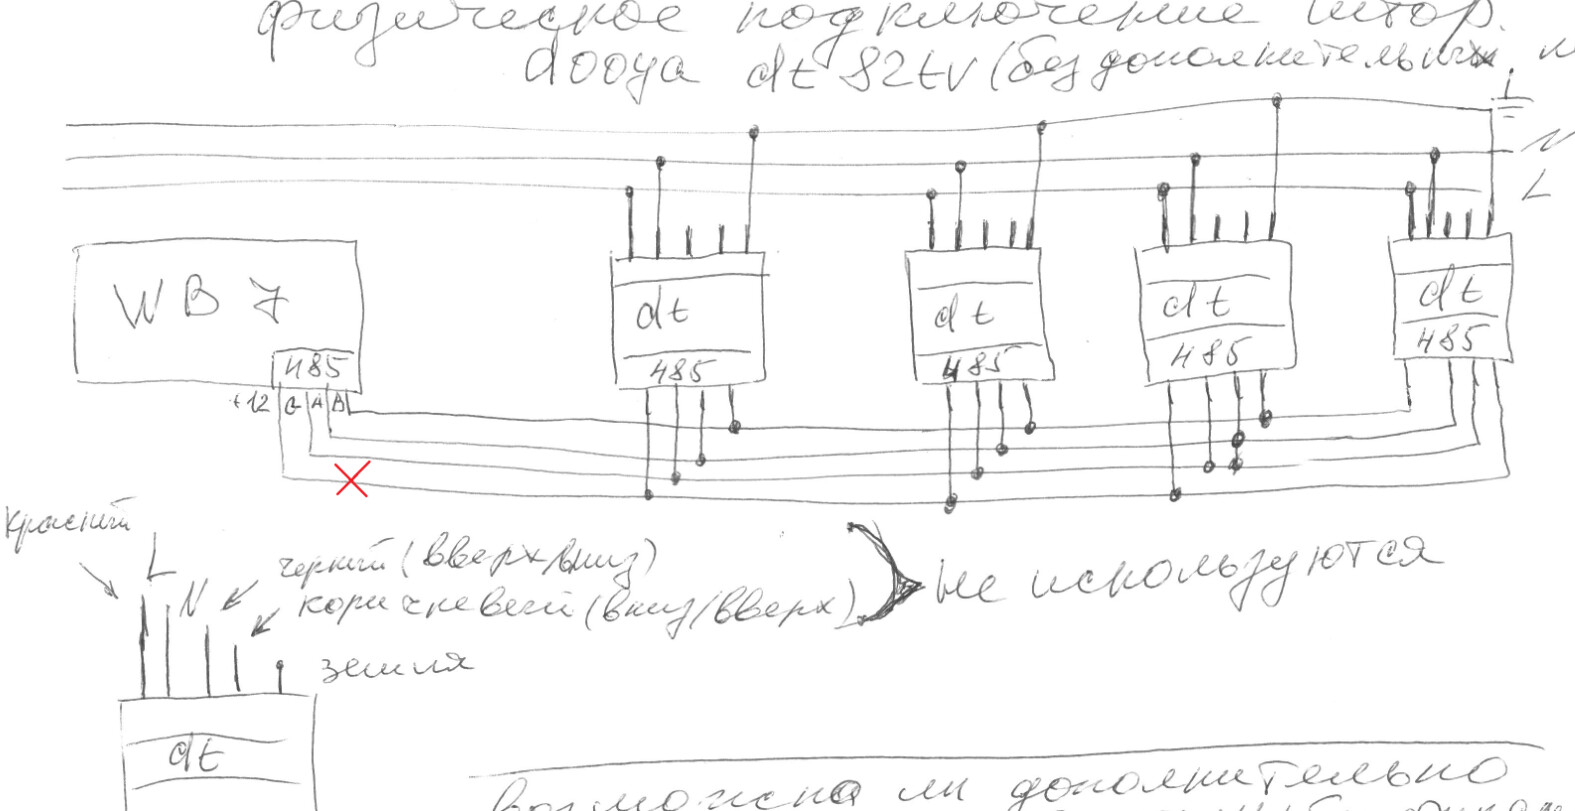 физическое подключение штор.
dooya dt 82tv (без дополнительных
N
L
WB 7
485
+12 G A B
dt
485
dt
485
dt
485
dt
485
красный
L
N
черный (вверх/вниз)
коричневый (вниз/вверх)
не используются
земля
dt
Возможна ли дополнительно